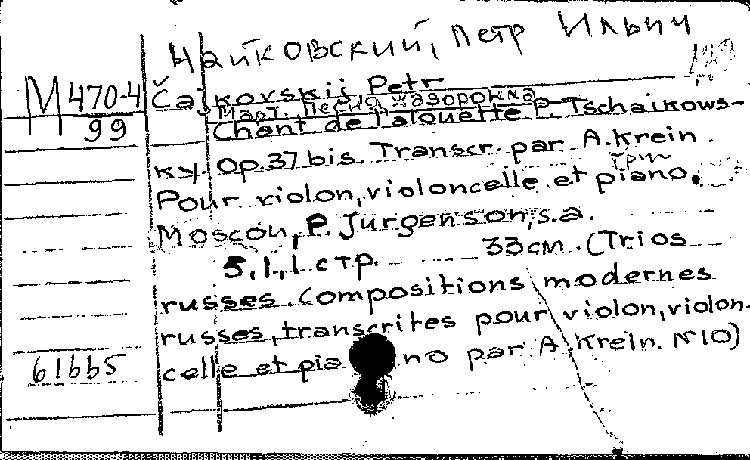 Чайковский, Петр Ильич
М470-4 Čajkovskij Petr
99 Март. Песня жаворонка
Chant de l'alouette P. Tschaikows-
ky. Op.37 bis. Transcr. par A. Krein.
трио
Pour violon, violoncelle et piano.
Moscou, P. Jurgenson, s.a.
5,1,1 стр. 33см. (Trios
russes. Compositions modernes
russes, transcrites pour violon, violon-
61665 celle et piano par A. Krein. N10)